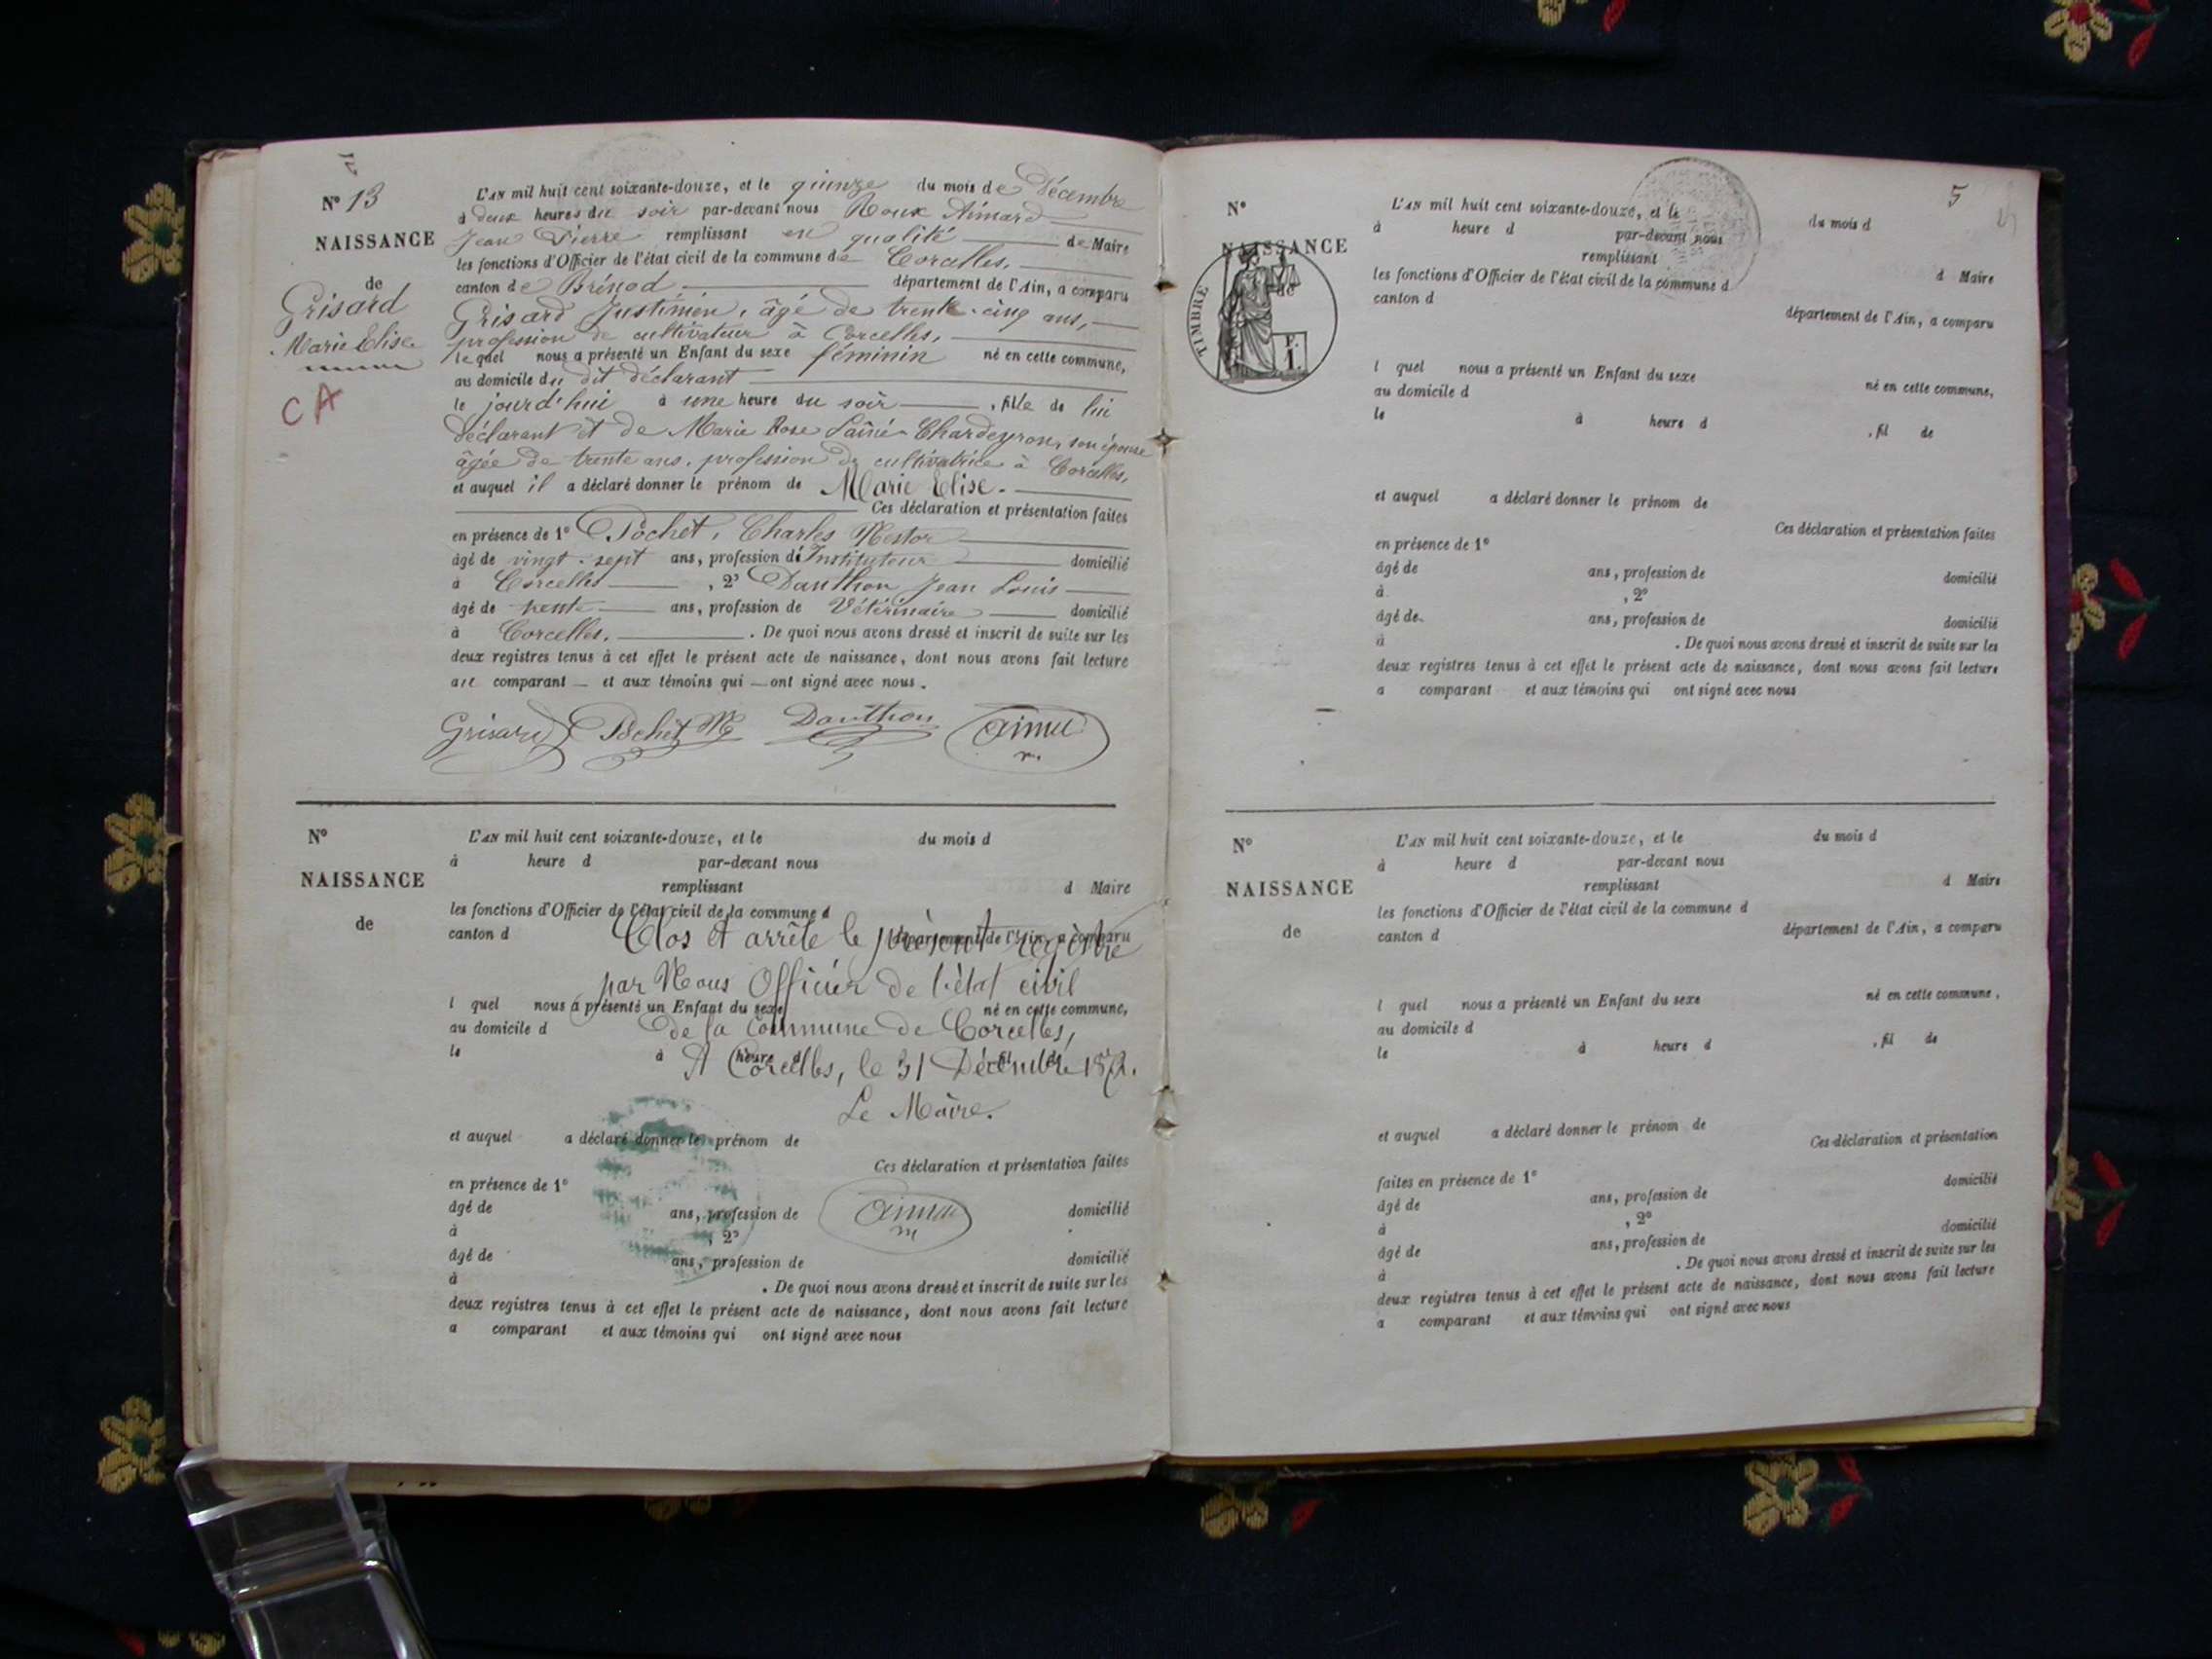 N° 13
NAISSANCE
de
Grisard
Marie Elise
CA
L'AN mil huit cent soixante-douze, et le quinze du mois de Décembre
à deux heures du soir par-devant nous Roux Aimard
Jean Pierre remplissant en qualité de Maire
les fonctions d'Officier de l'état civil de la commune de Corcelles,
canton de Brénod département de l'Ain, a comparu
Grisard Justinien, âgé de trente-cinq ans,
profession de cultivateur à Corcelles,
lequel nous a présenté un Enfant du sexe féminin né en cette commune,
au domicile du dit déclarant
le jourd'hui à une heure du soir, fille de lui
déclarant et de Marie Rose Chardeyron, son épouse
âgée de trente ans, profession de cultivatrice à Corcelles,
et auquel il a déclaré donner le prénom de Marie Elise.
Ces déclaration et présentation faites
en présence de 1° Pochet, Charles Nestor
âgé de vingt-sept ans, profession d'Instituteur domicilié
à Corcelles, 2° Danthon Jean Louis
âgé de trente ans, profession de Vétérinaire domicilié
à Corcelles. De quoi nous avons dressé et inscrit de suite sur les
deux registres tenus à cet effet le présent acte de naissance, dont nous avons fait lecture
au comparant et aux témoins qui ont signé avec nous.
Grisard Pochet Danthon
N°
NAISSANCE
de
L'AN mil huit cent soixante-douze, et le du mois d
à heure d par-devant nous
remplissant d Maire
les fonctions d'Officier de l'état civil de la commune d
canton d département de l'Ain, a comparu
Clos et arrêté le présent registre
par Nous Officier de l'état civil
l quel nous a présenté un Enfant du sexe né en cette commune,
au domicile d
de la Commune de Corcelles,
le à heure d , fil de
A Corcelles, le 31 Décembre 1872.
Le Maire.
et auquel a déclaré donner le prénom de
Ces déclaration et présentation faites
en présence de 1°
âgé de ans, profession de domicilié
à , 2°
âgé de ans, profession de domicilié
à . De quoi nous avons dressé et inscrit de suite sur les
deux registres tenus à cet effet le présent acte de naissance, dont nous avons fait lecture
a comparant et aux témoins qui ont signé avec nous
5
N°
NAISSANCE
de
TIMBRE
L'AN mil huit cent soixante-douze, et le du mois d
à heure d par-devant nous
remplissant d Maire
les fonctions d'Officier de l'état civil de la commune d
canton d département de l'Ain, a comparu
l quel nous a présenté un Enfant du sexe né en cette commune,
au domicile d
le à heure d , fil de
et auquel a déclaré donner le prénom de
Ces déclaration et présentation faites
en présence de 1°
âgé de ans, profession de domicilié
à , 2°
âgé de ans, profession de domicilié
à . De quoi nous avons dressé et inscrit de suite sur les
deux registres tenus à cet effet le présent acte de naissance, dont nous avons fait lecture
a comparant et aux témoins qui ont signé avec nous
N°
NAISSANCE
de
L'AN mil huit cent soixante-douze, et le du mois d
à heure d par-devant nous
remplissant d Maire
les fonctions d'Officier de l'état civil de la commune d
canton d département de l'Ain, a comparu
l quel nous a présenté un Enfant du sexe né en cette commune,
au domicile d
le à heure d , fil de
et auquel a déclaré donner le prénom de
Ces déclaration et présentation
faites en présence de 1°
âgé de ans, profession de domicilié
à , 2°
âgé de ans, profession de domicilié
à . De quoi nous avons dressé et inscrit de suite sur les
deux registres tenus à cet effet le présent acte de naissance, dont nous avons fait lecture
a comparant et aux témoins qui ont signé avec nous